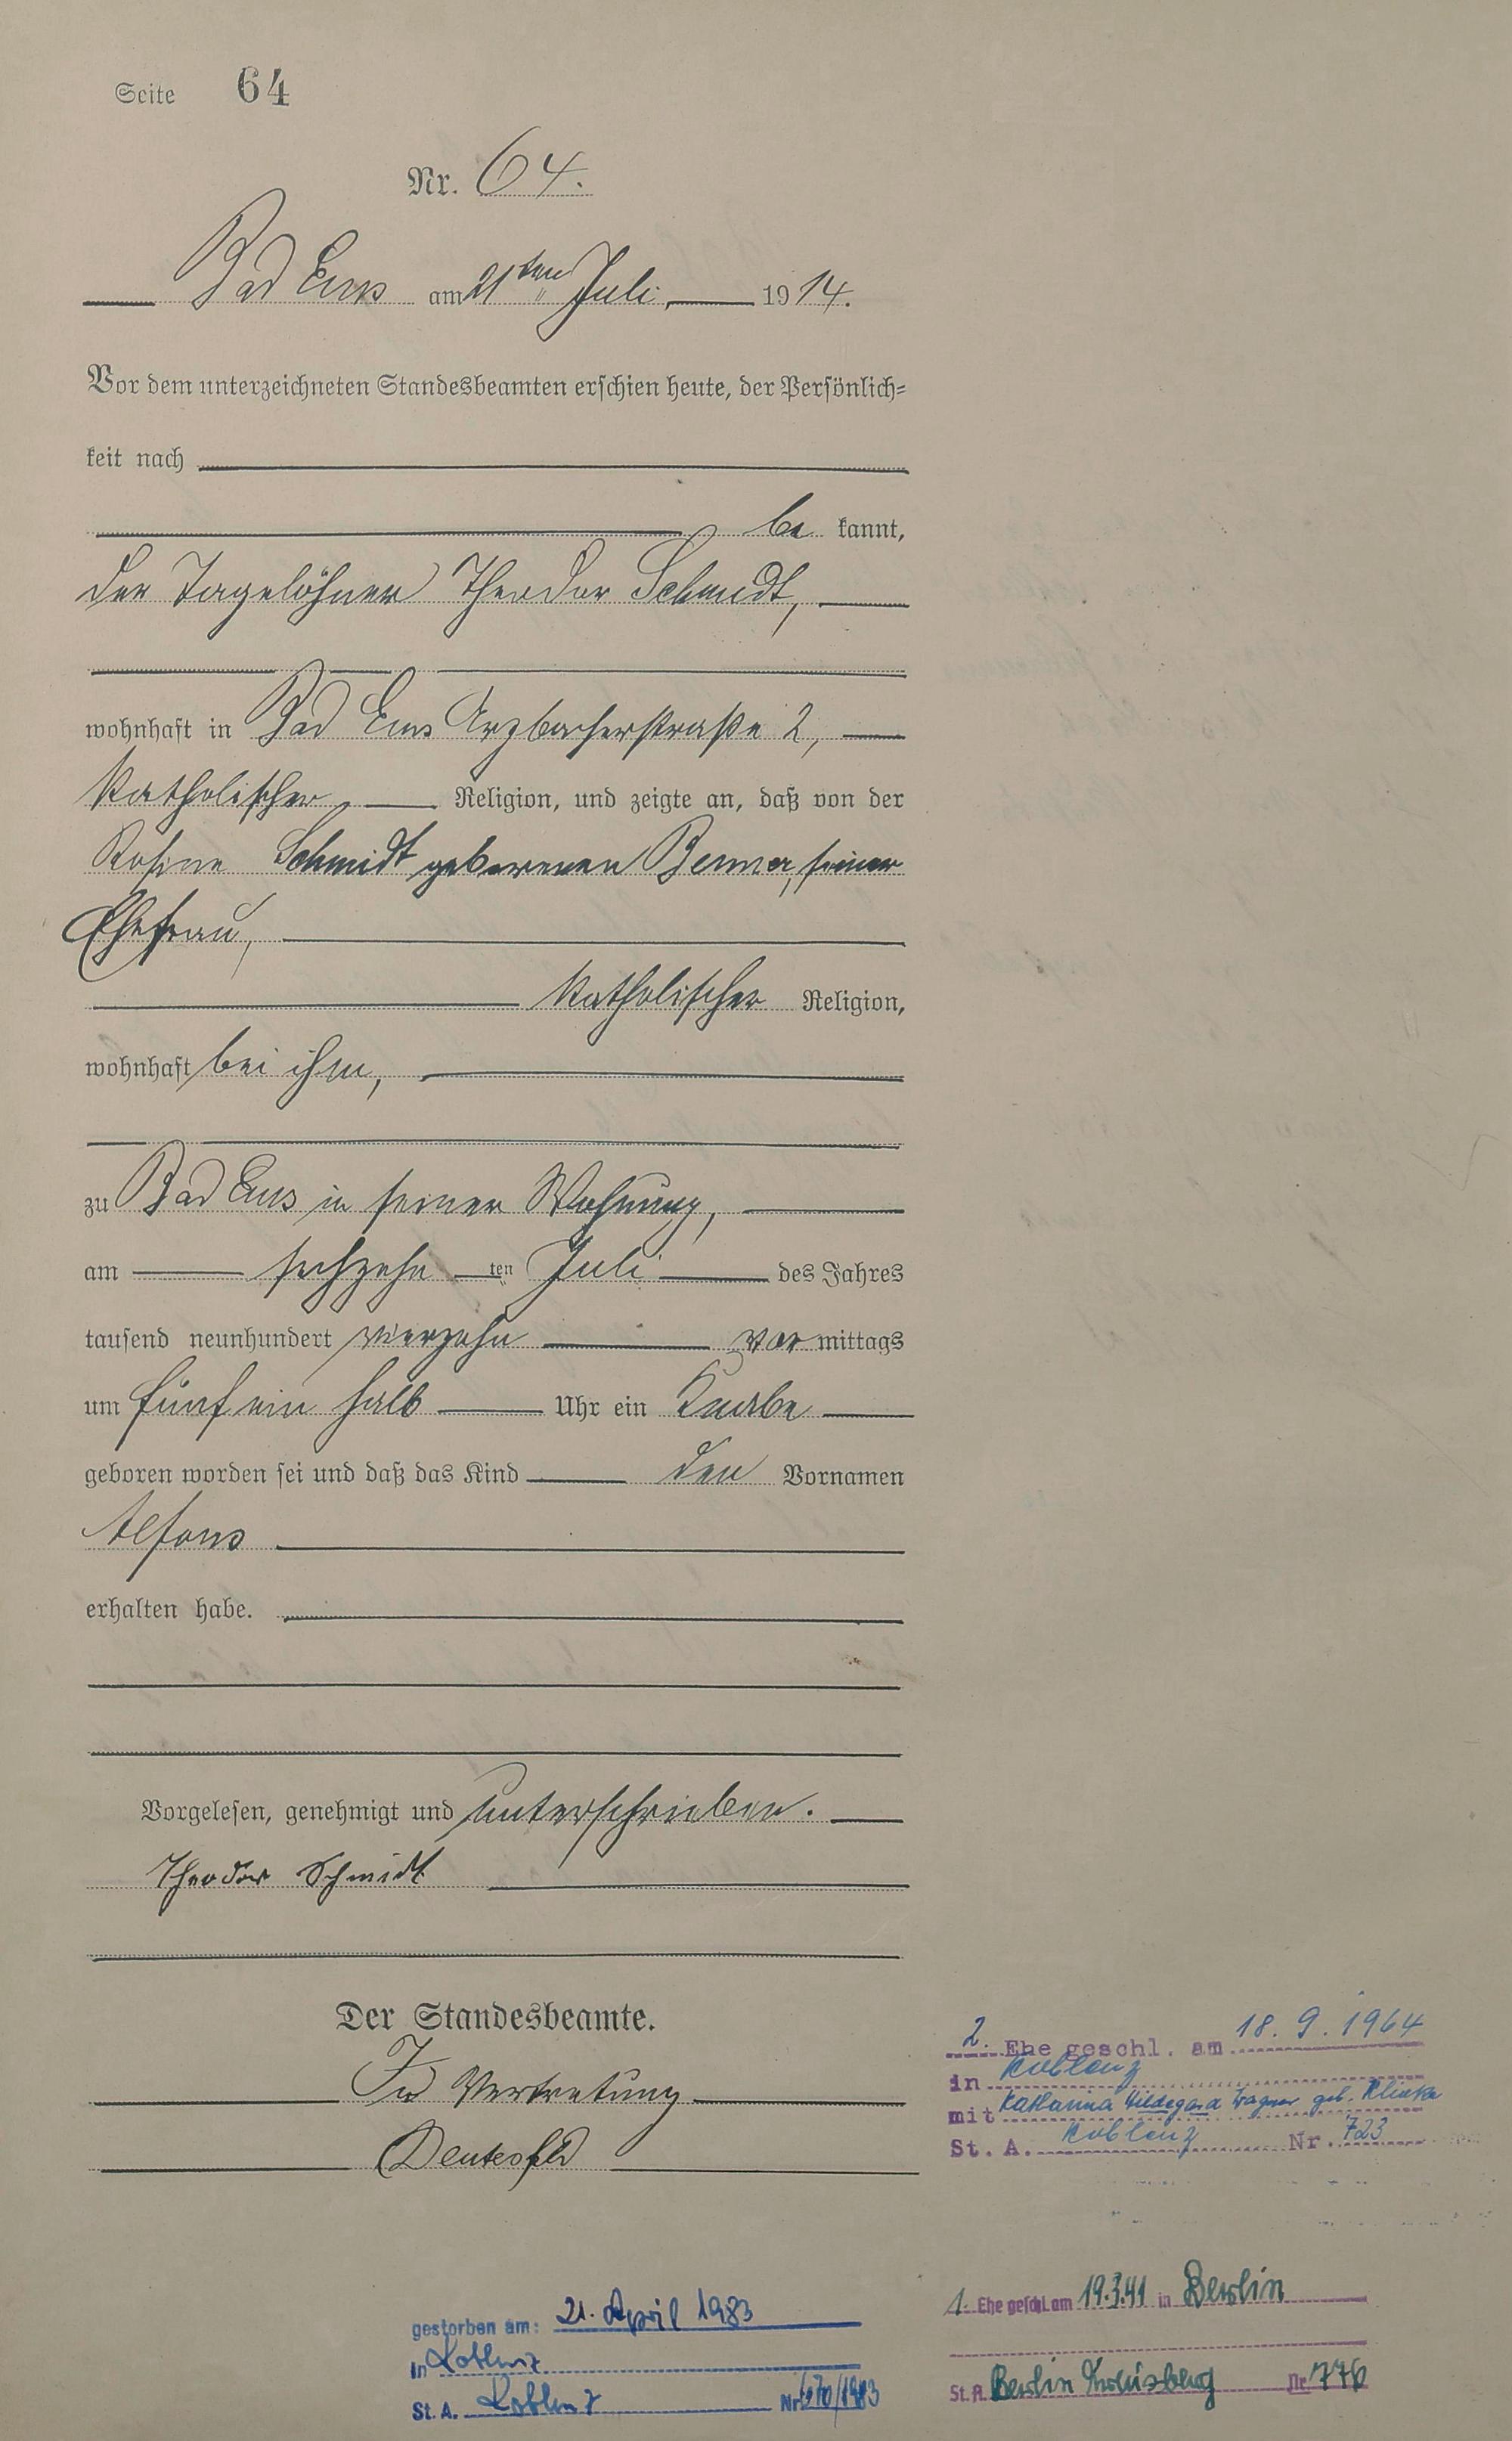 Seite 64
Nr. 64.
Bad Ems am 21ten Juli 1914.
Vor dem unterzeichneten Standesbeamten erschien heute, der Persönlich=
keit nach
be kannt,
der Tagelöhner Theodor Schmidt,
wohnhaft in Bad Ems Arzbacherstraße 2,
katholischer Religion, und zeigte an, daß von der
Rosine Schmidt geborenen Benner, seiner
Ehefrau,
katholischer Religion,
wohnhaft bei ihm,
zu Bad Ems in seiner Wohnung,
am sechzehn ten Juli des Jahres
tausend neunhundert vierzehn vor mittags
um fünf ein halb Uhr ein Knabe
geboren worden sei und daß das Kind den Vornamen
Alfons
erhalten habe.
Vorgelesen, genehmigt und unterschrieben.
Theodor Schmidt
Der Standesbeamte.
In Vertretung
2. Ehe geschl. am 18. 9. 1964
in Koblenz
mit Katharina Hildegard Wagner geb. Klinke
St. A. Koblenz Nr. 723
1. Ehe geschl. am 19.3.41 in Berlin
St. A. Berlin Nr 776
gestorben am: 21. April 1983
in Koblenz
St. A. Koblenz Nr 670/1983